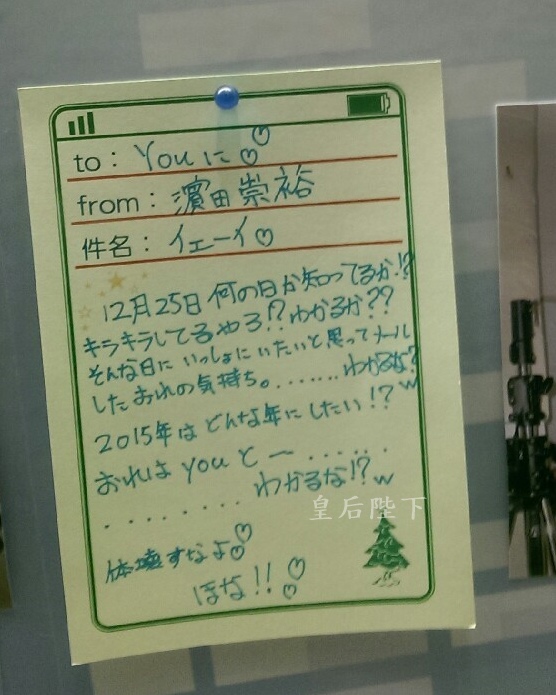 to: Youに♡
from: 濵田崇裕
件名: イェーイ♡
12月25日 何の日か知ってるか!?
キラキラしてるやろ!? わかるか??
そんな日に いっしょに いたいと思ってメール
したおれの気持ち。....... わかるな?w
2015年は どんな年にしたい!?
おれは you と ー ......
........ わかるな!?w
皇后陛下
体壊すなよ♡
ほな!!♡